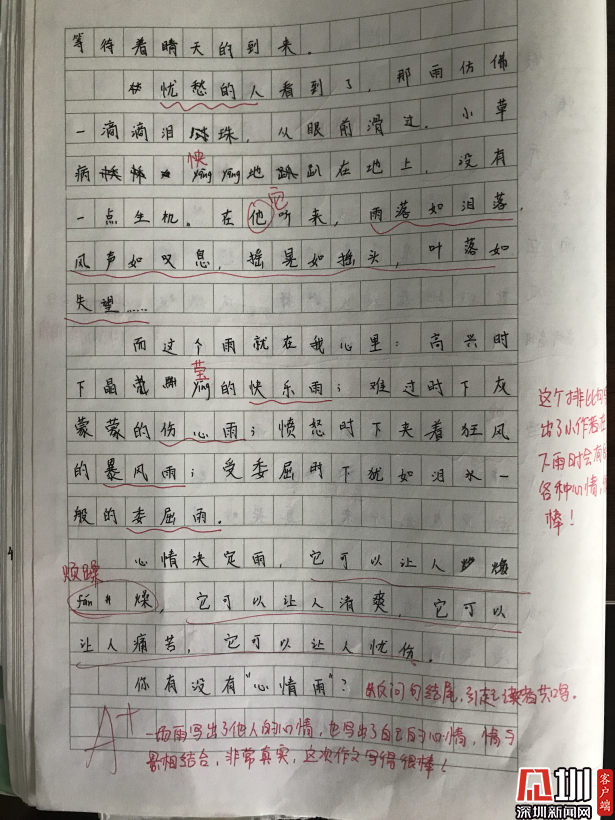 等待着晴天的到来。
忧愁的人看到了，那雨仿佛
一滴滴泪珠，从眼前滑过。小草
病怏
yāng yāng地趴在地上，没有
一点生机。在他它听来，雨落如泪落，
风声如叹息，摇晃如摇头，叶落如
失望……
而这个雨就在我心里：高兴时
下晶莹
yíng的快乐雨；难过时下灰
蒙蒙的伤心雨；愤怒时下夹着狂风
的暴风雨；受委屈时下犹如泪水一
般的委屈雨。
这个排比句写
出了小作者在
下雨时会有的
各种心情，
棒！
心情决定雨，它可以让人
烦躁
fán 燥，它可以让人清爽，它可以
让人痛苦，它可以让人忧伤。
你有没有“心情雨”？
反问句结尾，引起读者共鸣。
A+
一场雨写出了他人的心情，也写出了自己的心情，情与
景相结合，非常真实，这次作文写得很棒！
深圳
客户端
深圳新闻网